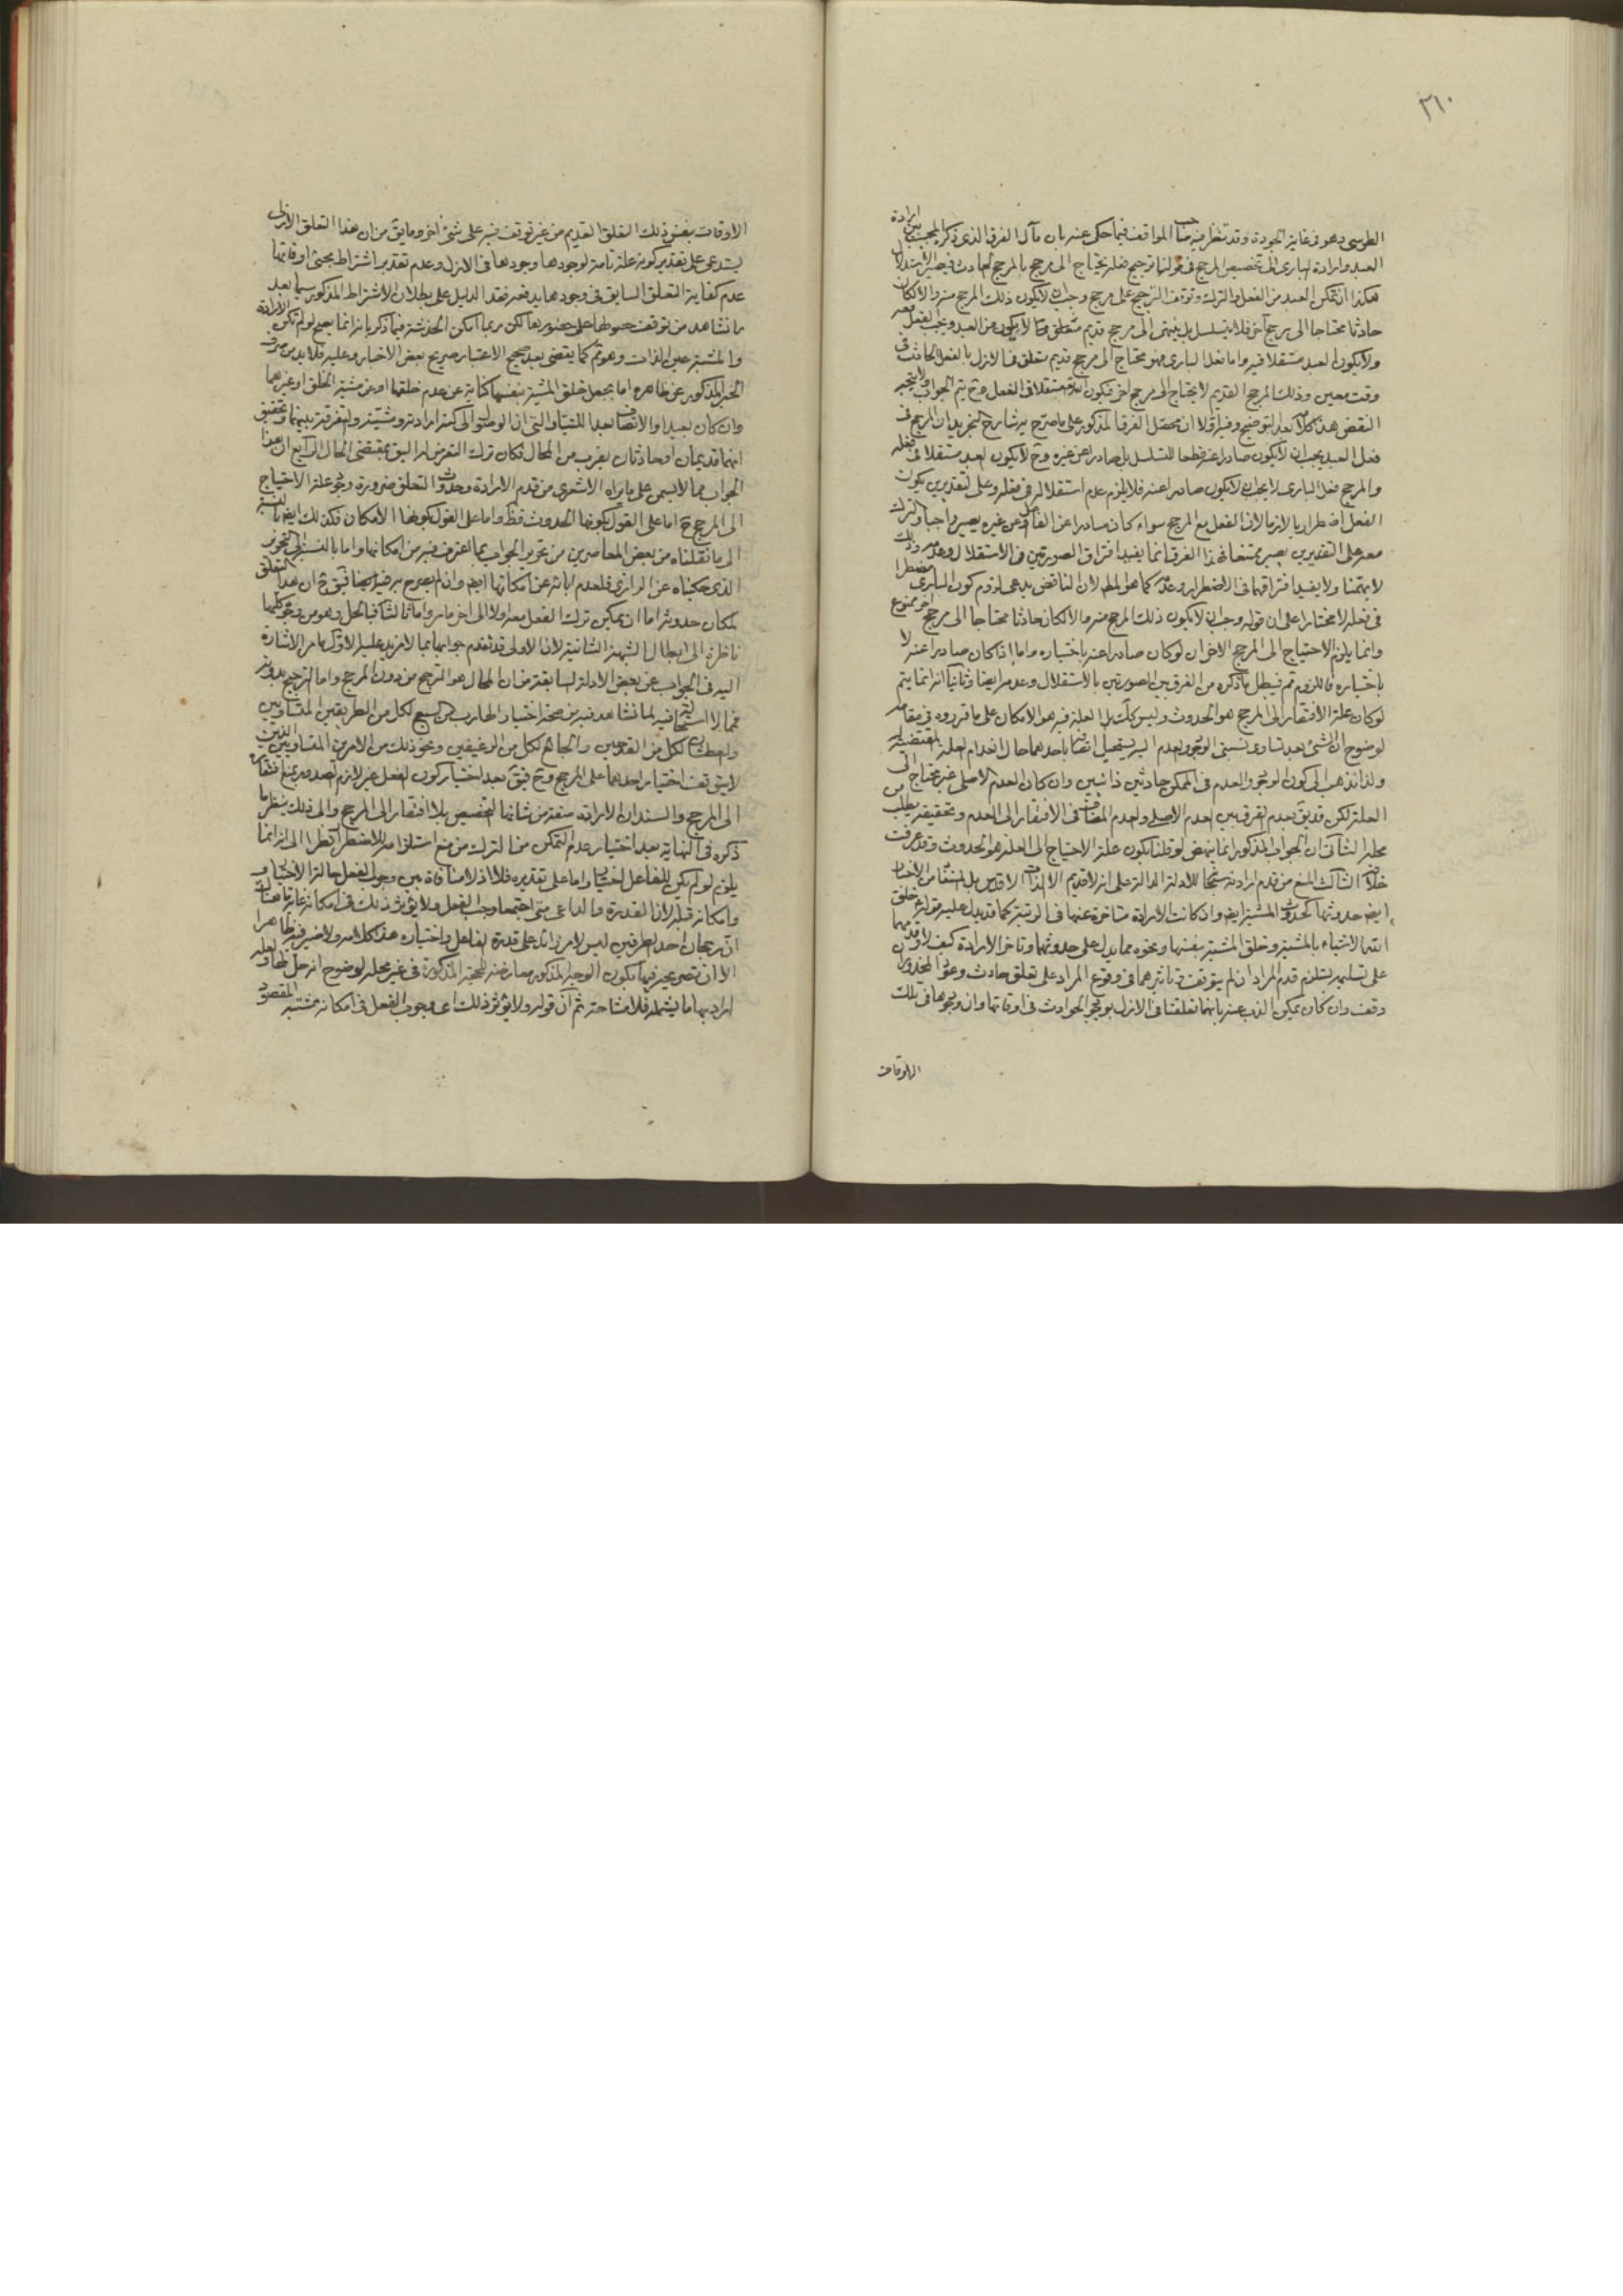 ٣١٠
الطوسى وهو فى غاية الجودة وقد تنظر فيه صاحب المواقف فيما حكى عنه بان مآل الفرق الذى ذكره المجيب بين ارادة
العبد وارادة البارى الى تخصيص المرجح فى قولنا ترجيح فعله يحتاج الى مرجح بالمرجح الحادث فيصير الاستدلال
هكذا ان تمكن العبد من الفعل والترك وتوقف الترجيح على مرجح وجب ان لا يكون ذلك المرجح منه والا لكان
حادثا محتاجا الى مرجح آخر فلا يتسلسل بل ينتهى الى مرجح قديم متعلق لا يكون من العبد ويجب الفعل معه
ولا يكون العبد مستقلا فيه واما فعل البارى فهو محتاج الى مرجح قديم متعلق فى الازل بالفعل الحادث فى
وقت معين وذلك المرجح القديم لا يحتاج الى مرجح اخر فيكون مستقلا فى الفعل وح يتم الجواب ولا يتجه
النقض هذا كلامه بعد التوضيح وفيه اولا ان محصل الفرق المذكور على ما صرح به شارح التجريد ان المرجح فى
فعل العبد يجب ان لا يكون صادرا عنه قطعا للتسلسل بل صادرا عن غيره وح لا يكون العبد مستقلا فى فعله
والمرجح فى فعل البارى لا يجب ان لا يكون صادرا عنه فلا يلزم عدم استقلاله فى فعله وعلى التقديرين يكون
الفعل اضطراريا لازما لان الفعل مع المرجح سواء كان صادرا عن الفاعل او عن غيره يصير واجبا والترك
معه على التقديرين يصير ممتنعا فهذا الفرق انما يفيد افتراق الصورتين فى الاستقلال وعدمه وذلك
لا يهمنا ولا يفيد افتراقهما فى الاضطرار وعدمه كما هو المط لان الناقض يدعى لزوم كون البارى مضطرا
فى فعله لا مختارا على ان قوله وجب ان لا يكون ذلك المرجح منه والا لكان حادثا محتاجا الى مرجح اخر ممنوع
وانما يلزم الاحتياج الى المرجح الاخر ان لو كان صادرا عنه باختياره واما اذا كان صادرا عنه لا
باختياره فاللزوم مم فيبطل ما ذكره من الفرق بين الصورتين بالاستقلال وعدمه ايضا وثانيا انه انما يتم
لو كان علة الافتقار الى المرجح هو الحدوث وليس كك بل العلة فيه هو الامكان على ما قرروه فى مقامه
لوضوح ان الشئ بعد تساوى نسبتى الوجود والعدم اليه يستحيل اتصافه باحدهما حال انعدام العلة المقتضية له
ولذا نذهب الى كون الوجود والعدم فى الممكن حادثين ذاتيين وان كان العدم الاصلى غير محتاج الى
العلة لكن قد يق بعدم الفرق بين العدم الاصلى والعدم المضاف فى الافتقار الى العدم وتحقيقه يطلب من
محله الثانى ان الجواب المذكور انما ينهض لو قلنا بكون علة الاحتياج الى العلة هو الحدوث وقد عرفت
خلافه الثالث المنع من قدم ارادته سبحانه للادلة الدالة على انه لا قديم الا الذات الاقدس بل المستفاد من الاخبار
ايضا حدوثها كحدوث المشية ايضا وان كانت الارادة متاخرة عنها فى الرتبة كما قد يدل عليه قوله خلق
الله الاشياء بالمشية وخلق المشية بنفسها ونحوه مما يدل على حدوثها وتاخر الارادة كيف لا وقدمهما
على تسليمه يستلزم قدم المراد ان لم يتوقف تاثيرهما فى وقوع المراد على تعلق حادث وعود المحذور ان
وقف وان كان يمكن الذب عنه بانها تعلقت فى الازل بوجود الحوادث فى اوقاتها وان وجودها فى تلك
الاوقات
الاوقات بنفس ذلك التعلق القديم من غير توقف فيه على شئ اخر وما يق من ان هذا التعلق الازلى
يستدعى على تقدير كونه علة تامة لوجودها وجودها فى الازل وعدم تقدير اشتراط مجئ اوقاتها
عدم كفاية التعلق السابق فى وجودها يدفعه فقد الدليل على بطلان الاشتراط المذكور سيما بعد
ما نشاهد من توقف لكن ربما امكن الخدشة فيما ذكر بانه انما يصح لو لم تكن الارادة
والمشية عين الذات وهو مم كما يقضى بعد صحيح الاعتبار صريح بعض الاخبار وعليه فلا بد من صرف
الخبر المذكور عن ظاهره اما بجعل خلق المشية بنفسها كناية عن عدم خلقها او عن مشية الخلق او غيرهما
وان كان بعيدا والانصاف بعد اللتيا والتى ان الوصول الى كنه ارادته ومشيته والتفرقة بينهما وتحقيق
انهما قديمان او حادثان يقرب من المحال فكان ترك التعرض له اليق بمقتضى الحال الرابع ان هذا
الجواب مما لا يسمن على ما يراه الاشعرى من قدم الارادة وحدوث التعلق ضرورة وجود علة الاحتياج
الى المرجح ح اما على القول بكونها الحدوث فظ واما على القول بكونها الامكان فكذلك ايضا بالنسبة
الى ما نقلناه من بعض المعاصرين من تحرير الجواب بما اعترف فيه من امكانها واما بالنسبة الى التحرير
الذى حكيناه عن الرازى فلعدم ابائه عن امكانها ايضا وان لم يصرح به فيه ايضا فيق ح ان هذا التعلق
لمكان حدوثه اما ان يمكن ترك الفعل معه اولا الى اخر ما مر واما ثالثا فبالحل وهو من وجوه كلها
ناظرة الى ابطال الشبهة الثانية لان الاولى قد تقدم جوابها بما لا مزيد عليه الاول ما مر الاشارة
اليه فى الجواب عن بعض الادلة السابقة من ان المحال هو الترجح من دون المرجح واما الترجيح بدونه
فمما لا استحالة فيه لما نشاهد فيه من صحة اختيار الهارب من السبع لكل من الطريقين المتساويين
والعطشان لكل من القدحين والجائع لكل من الرغيفين ونحو ذلك من الامرين المتساويين الذين
لا يتوقف اختيار احدهما على المرجح وح فيق بعد اختيار كون الفعل غير لازم الصدور بمنع افتقاره
الى المرجح والسند ان الارادة صفة من شانها التخصيص بلا افتقار الى المرجح والى ذلك ينظر ما
ذكره فى النهاية بعد اختيار عدم التمكن من الترك من منع استلزامه للاضطرار نظرا الى انه انما
يلزم لو لم يكن للفاعل اختيار واما على تقديره فلا اذ لا منافاة بين وجوب الفعل حالة الاختيار
وامكانه قبله لان القدرة والداعى متى اجتمعا وجب الفعل ولا يؤثر ذلك فى امكانه غاية ما هناك
ان رجحان احد الطرفين ليس لامر زائد على قدرة الفاعل واختياره هذا كلامه ولا ضير فيه ظاهرا
الا ان تصريحه فيها بكون الوجه المذكور معارضة للحجة المذكورة فى غير محله لوضوح انه حل لها ولعله
اراد بها ما يشمله فلا مشاحة ثم ان قوله ولا يؤثر ذلك اى وجوب الفعل فى امكانه مشتبه المقصود